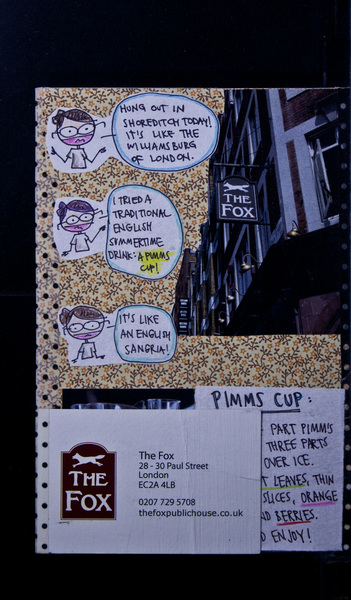 HUNG OUT IN
SHOREDITCH TODAY!
IT'S LIKE THE
WILLIAMSBURG
OF LONDON.
I TRIED A
TRADITIONAL
ENGLISH
SUMMERTIME
DRINK: A PIMMS
CUP!
IT'S LIKE
AN ENGLISH
SANGRIA!
THE
FOX
PIMMS CUP:
PART PIMM'S
THREE PARTS
OVER ICE.
LEAVES, THIN
SLICES, ORANGE
BERRIES.
ENJOY!
THE
FOX
The Fox
28 - 30 Paul Street
London
EC2A 4LB
0207 729 5708
thefoxpublichouse.co.uk